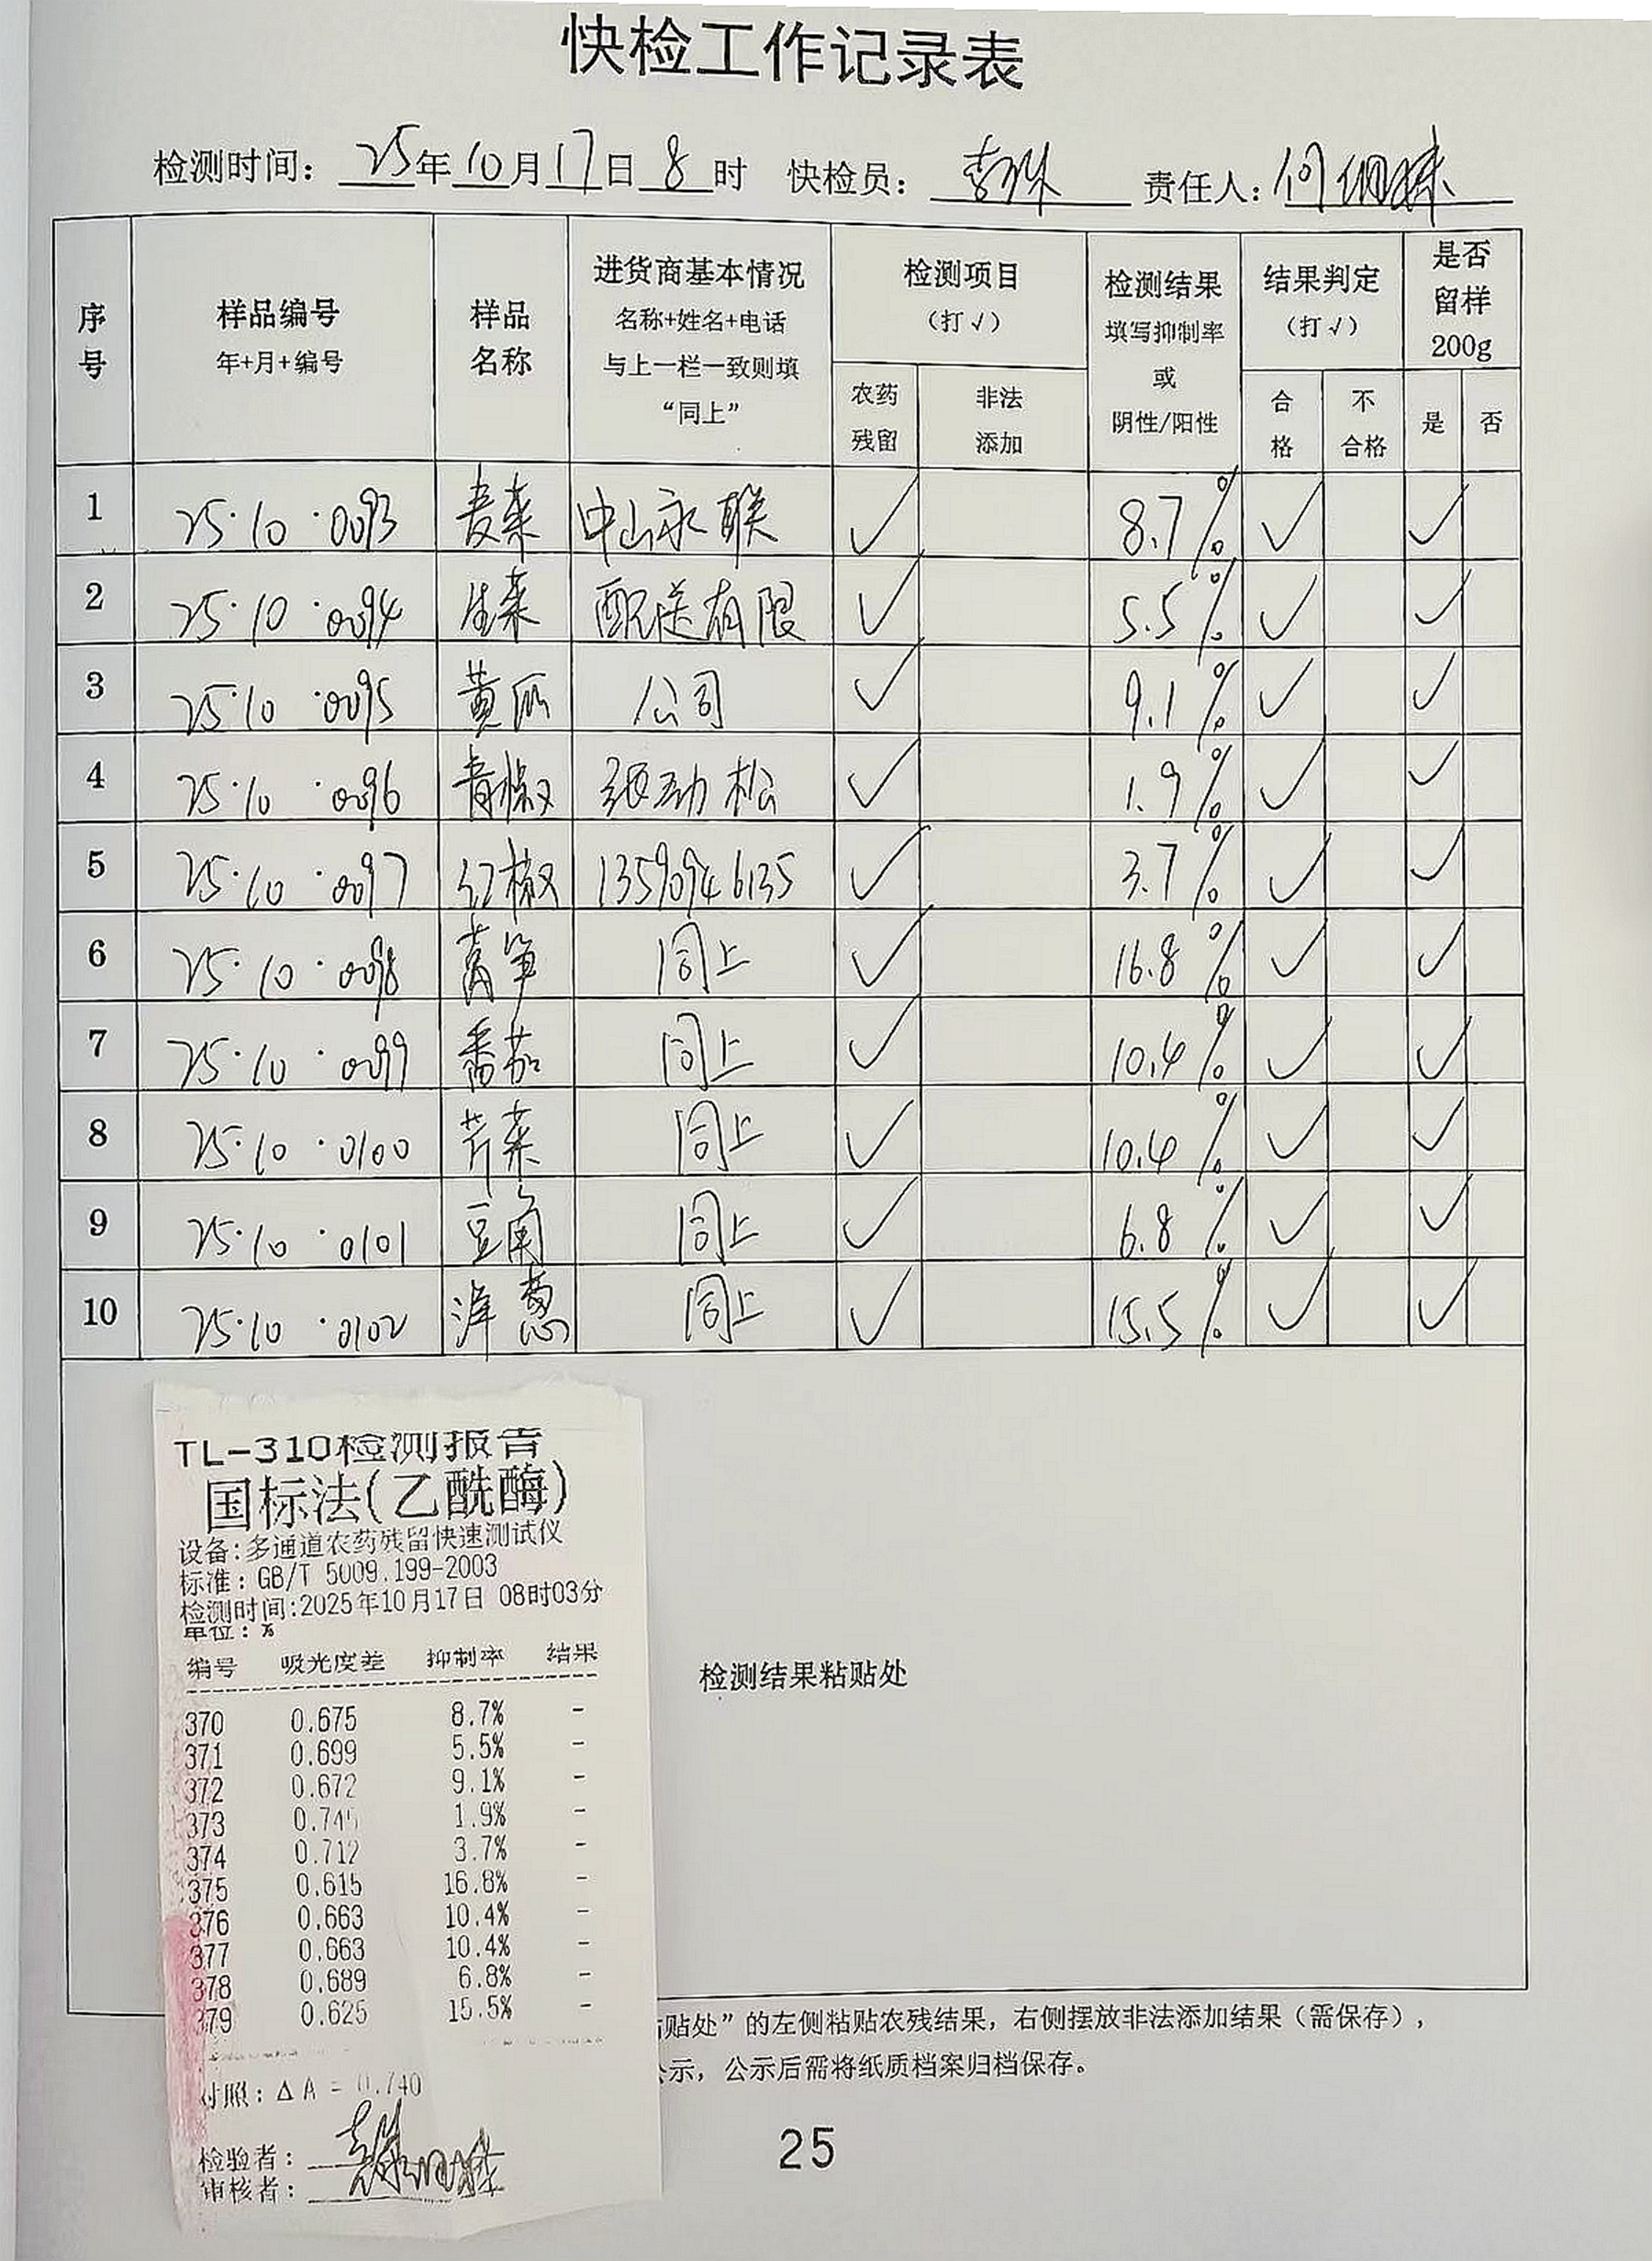 快检工作记录表
检测时间：25年10月17日8时 快检员： 责任人：
序号 样品编号 年+月+编号 样品名称 进货商基本情况 名称+姓名+电话 与上一栏一致则填“同上” 检测项目（打√） 农药残留 非法添加 检测结果 填写抑制率或阴性/阳性 结果判定（打√） 合格 不合格 是否留样200g 是 否
1 25·10·0093 麦菜 中山永联 √ 8.7% √ √
2 25·10·0094 生菜 配送有限 √ 5.5% √ √
3 25·10·0095 黄瓜 公司 √ 9.1% √ √
4 25·10·0096 青椒 张劲松 √ 1.9% √ √
5 25·10·0097 红椒 13590946135 √ 3.7% √ √
6 25·10·0098 莴笋 同上 √ 16.8% √ √
7 25·10·0099 番茄 同上 √ 10.4% √ √
8 25·10·0100 芹菜 同上 √ 10.4% √ √
9 25·10·0101 豆角 同上 √ 6.8% √ √
10 25·10·0102 洋葱 同上 √ 15.5% √ √
TL-310检测报告
国标法(乙酰酶)
设备:多通道农药残留快速测试仪
标准：GB/T 5009.199-2003
检测时间:2025年10月17日 08时03分
单位：%
编号 吸光度差 抑制率 结果
370 0.675 8.7% -
371 0.699 5.5% -
372 0.672 9.1% -
373 1.9% -
374 0.712 3.7% -
375 0.615 16.8% -
376 0.663 10.4% -
377 0.663 10.4% -
378 0.689 6.8% -
379 0.625 15.5% -
对照：ΔA = 0.740
检验者：
审核者：
检测结果粘贴处
贴处”的左侧粘贴农残结果，右侧摆放非法添加结果（需保存），
示，公示后需将纸质档案归档保存。
25